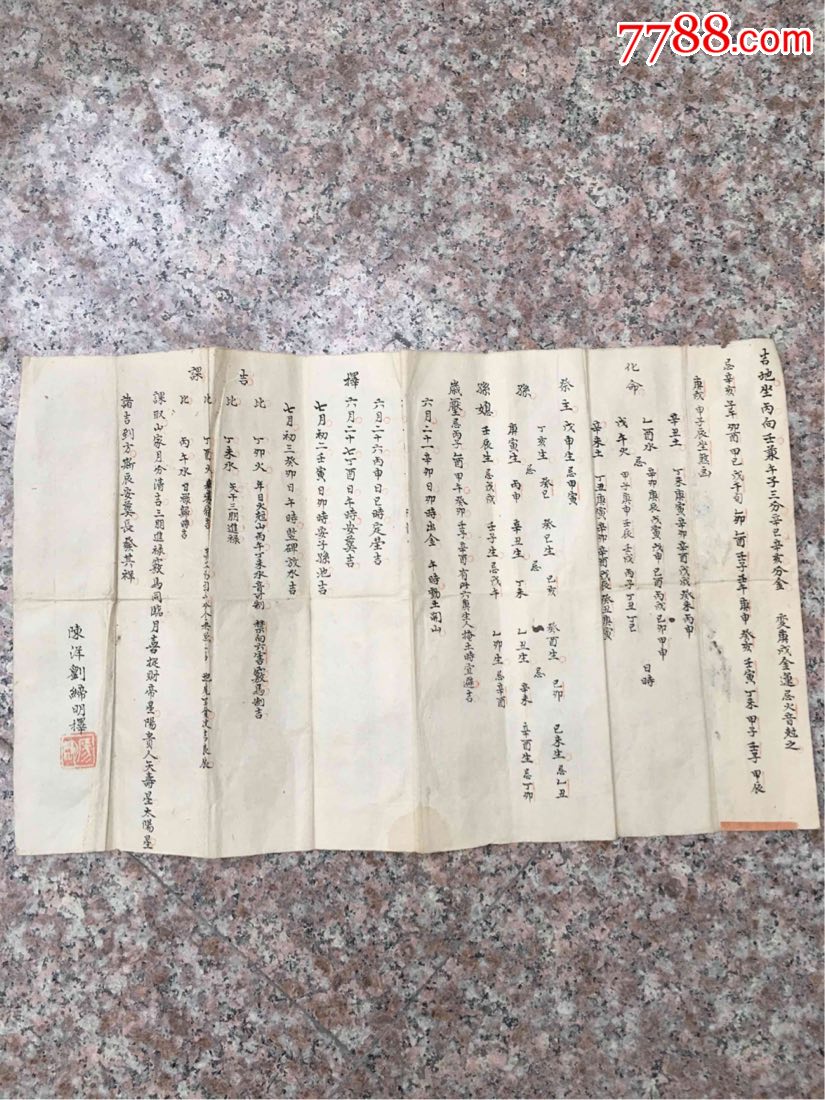 7788.com
吉地坐丙向壬兼午子三分辛巳辛亥分金 変庚戌金運忌火音尅之
忌辛亥子年卯酉甲己戊午旬乙卯乙酉壬子壬午庚申癸亥壬寅丁未甲子壬子甲辰
庚戌甲子辰坐煞
化命
辛丑土 丁未庚寅辛卯辛酉戊戌癸未丙申
乙酉水 忌 辛卯庚辰戊寅戊申己酉丙戌己卯甲申 日時
戊午火 甲子庚申壬辰壬戌丙子丁丑丁巳
辛未土 丁丑庚寅辛卯辛酉戊辰癸丑庚寅
祭主 戊申生忌甲寅
丁亥生忌癸巳 癸巳生忌己亥 癸酉生忌己卯 己未生忌乙丑
孫 庚寅生丙申 辛丑生丁未 乙丑生辛未 辛酉生忌丁卯
孫媳 壬辰生忌戊戌 壬子生忌戊午 乙卯生忌辛酉
六月二十一辛卯日卯時出金 午時動土開山
六月二十六丙申日巳時定星吉
擇 六月二十七丁酉日午時安葬吉
七月初二壬寅日卯時安子孫池吉
七月初三癸卯日午時竪碑放水吉
吉 比 丁卯火 年日火尅山丙午丁未水音可制
比 丁未水 矢干三朋進祿
課 比 丙午水
課取山家月分清吉三朋進祿
諸吉到方斯辰安葬長發其祥
陳洋劉 明擇